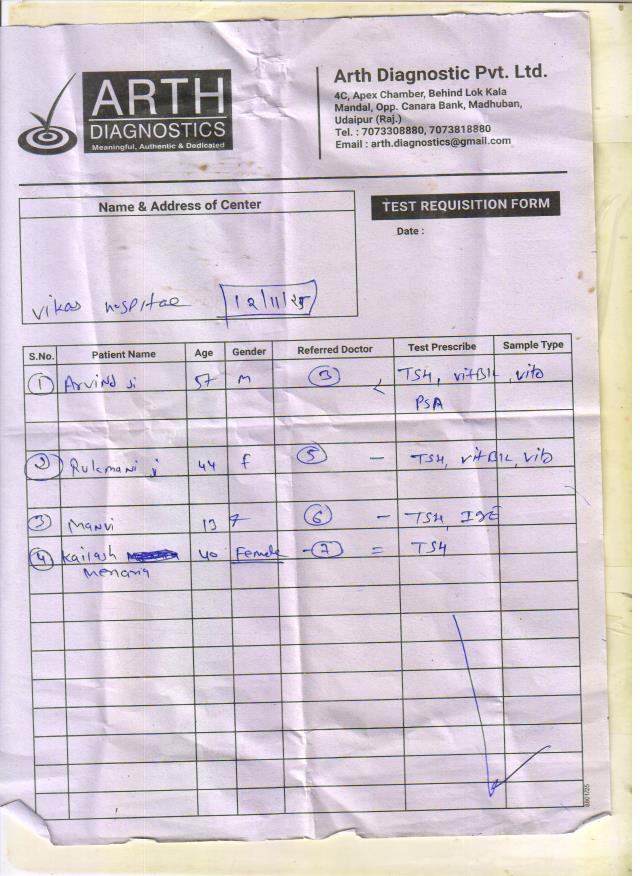 ARTH
DIAGNOSTICS
Meaningful, Authentic & Dedicated
Arth Diagnostic Pvt. Ltd.
4C, Apex Chamber, Behind Lok Kala
Mandal, Opp. Canara Bank, Madhuban,
Udaipur (Raj.)
Tel. : 7073308880, 7073818880
Email : arth.diagnostics@gmail.com
Name & Address of Center
TEST REQUISITION FORM
Date :
Vikas Hospital 12/11/25
S.No. Patient Name Age Gender Referred Doctor Test Prescribe Sample Type
1 Arvind Ji 57 M 3 < TSH, vitB12, vitD
PSA
2 Rukmani Ji 44 f 5 - TSH, vitB12, vitD
3 Manvi 13 F 6 - TSH, IGE
4 Kailash 40 Female -7 = TSH
Menaria